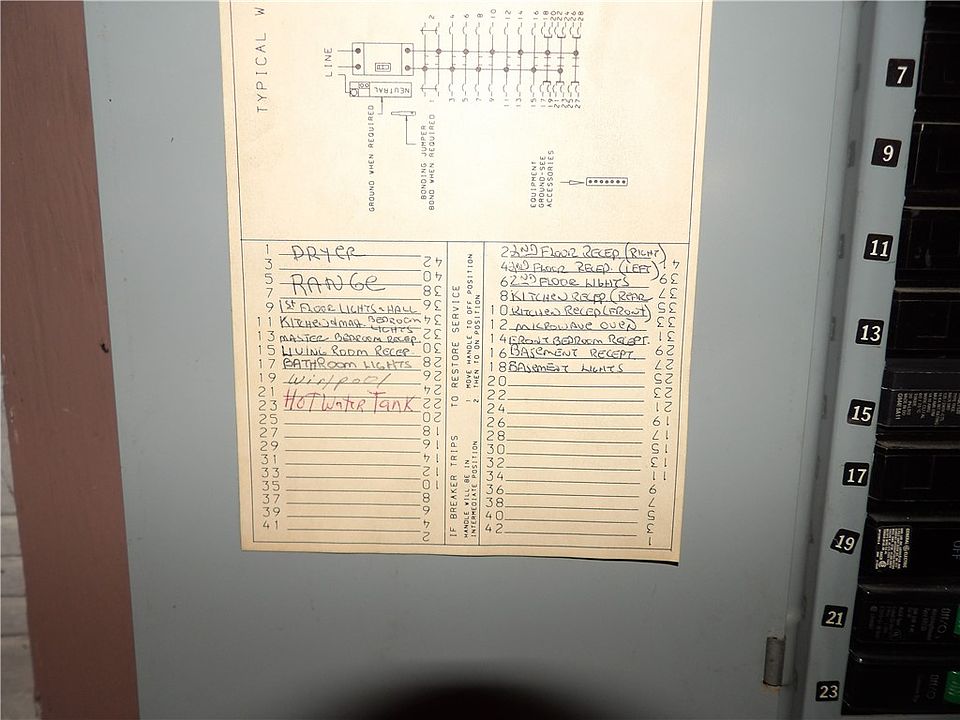 TYPICAL W
LINE
NEUTRAL
GROUND WHEN REQUIRED
BONDING JUMPER
BOND WHEN REQUIRED
EQUIPMENT
GROUND-SEE
ACCESSORIES
1 DRYER 42
3 40
5 RANGE 38
7 36
9 1ST FLOOR LIGHTS - HALL 34
11 KITCHEN & MAS. BEDROOM LIGHTS 32
13 MASTER BEDROOM RECEP. 30
15 LIVING ROOM RECEP. 28
17 BATHROOM LIGHTS 26
19 Wirlpool 24
21 22
23 HOT WATER TANK 20
25 18
27 16
29 14
31 12
33 10
35 8
37 6
39 4
41 2
IF BREAKER TRIPS
HANDLE WILL BE IN
INTERMEDIATE POSITION
TO RESTORE SERVICE
1. MOVE HANDLE TO OFF POSITION
2. THEN TO ON POSITION
2 2ND FLOOR RECEP (RIGHT) 41
4 2ND FLOOR RECEP. (LEFT) 39
6 2ND FLOOR LIGHTS 37
8 KITCHEN RECEP (REAR 35
10 KITCHEN RECEP (FRONT) 33
12 MICROWAVE OVEN 31
14 FRONT BEDROOM RECEPT. 29
16 BASEMENT RECEPT. 27
18 BASEMENT LIGHTS 25
20 23
22 21
24 19
26 17
28 15
30 13
32 11
34 9
36 7
38 5
40 3
42 1
7
9
11
13
15
17
19
21
23
GENERAL ELECTRIC
OFF